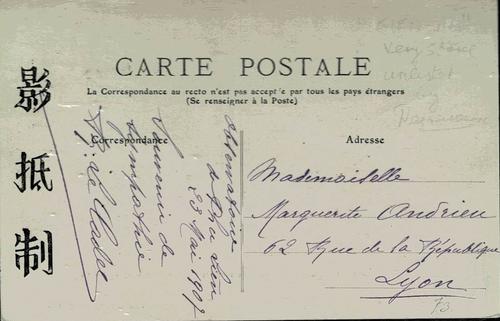 CARTE POSTALE
La Correspondance au recto n'est pas acceptée par tous les pays étrangers
(Se renseigner à la Poste)
Correspondance
Adresse
影
抵
制
Observatoire
de
23 Mai 1907
Souvenir de
sympathie
Mademoiselle
Marguerite Andrieu
62 Rue de la République
Lyon
very scarce
unlisted
73